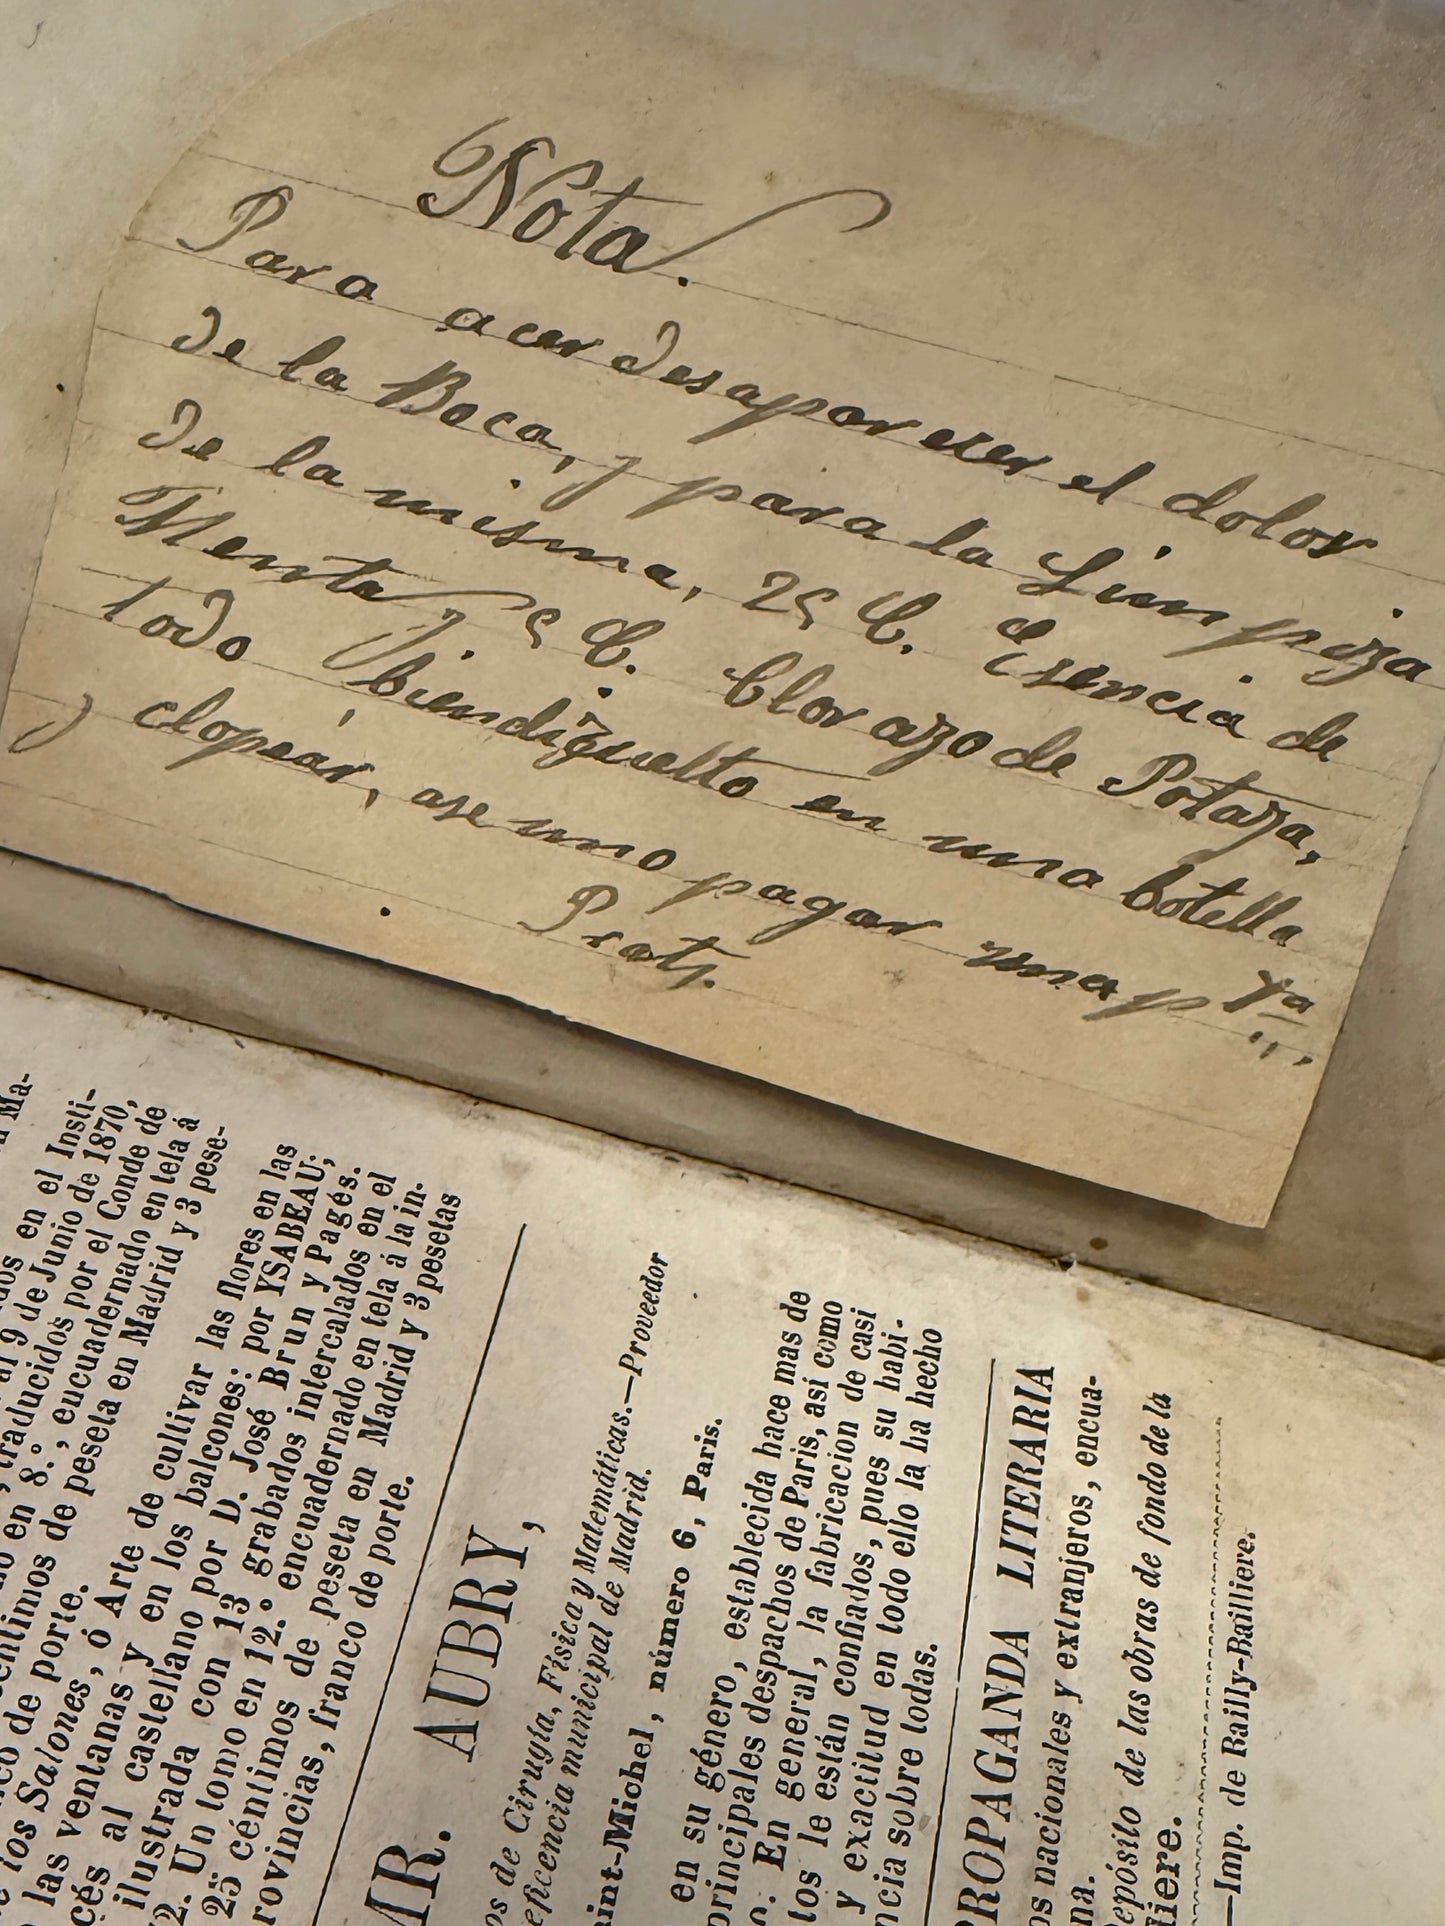 Nota.
Para acer desaparecer el dolor
de la Boca, y para la Limpiza
de la misma, 25 C. Esencia de
Menta y 5 C. Clorazo de Potaza,
todo biendizuelto en una botella
y clopeár, ase uno pagar una pta
Prats.
Ma-
en el Insti-
al 9 de Junio de 1870,
traducidos por el Conde de
en 8.°, encuadernado en tela á
céntimos de peseta en Madrid y 3 pese-
de porte.
los Salones, ó Arte de cultivar las flores en las
las ventanas y en los balcones: por YSABEAU;
al castellano por D. José Brun y Pagés.
ilustrada con 13 grabados intercalados en el
Un tomo en 12.° encuadernado en tela á la in-
25 céntimos de peseta en Madrid y 3 pesetas
provincias, franco de porte.
MR. AUBRY,
de Cirugía, Física y Matemáticas.—Proveedor
Beneficencia municipal de Madrid.
Saint-Michel, número 6, Paris.
en su género, establecida hace mas de
principales despachos de Paris, así como
En general, la fabricacion de casi
tos le están confiados, pues su habi-
y exactitud en todo ello la ha hecho
sobre todas.
PROPAGANDA LITERARIA
nacionales y extranjeros, encua-
Depósito de las obras de fondo de la
—Imp. de Bailly-Bailliere.